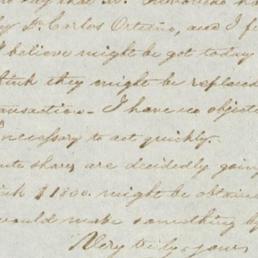 by Dr. Carlos Orteiro, and I f
I believe might be got today
think they might be replaced
ansaction - I have no object
necessary to act quickly.
ute shares are decidedly going
nk $1800. might be obtaine
would make something by
Very truly yours